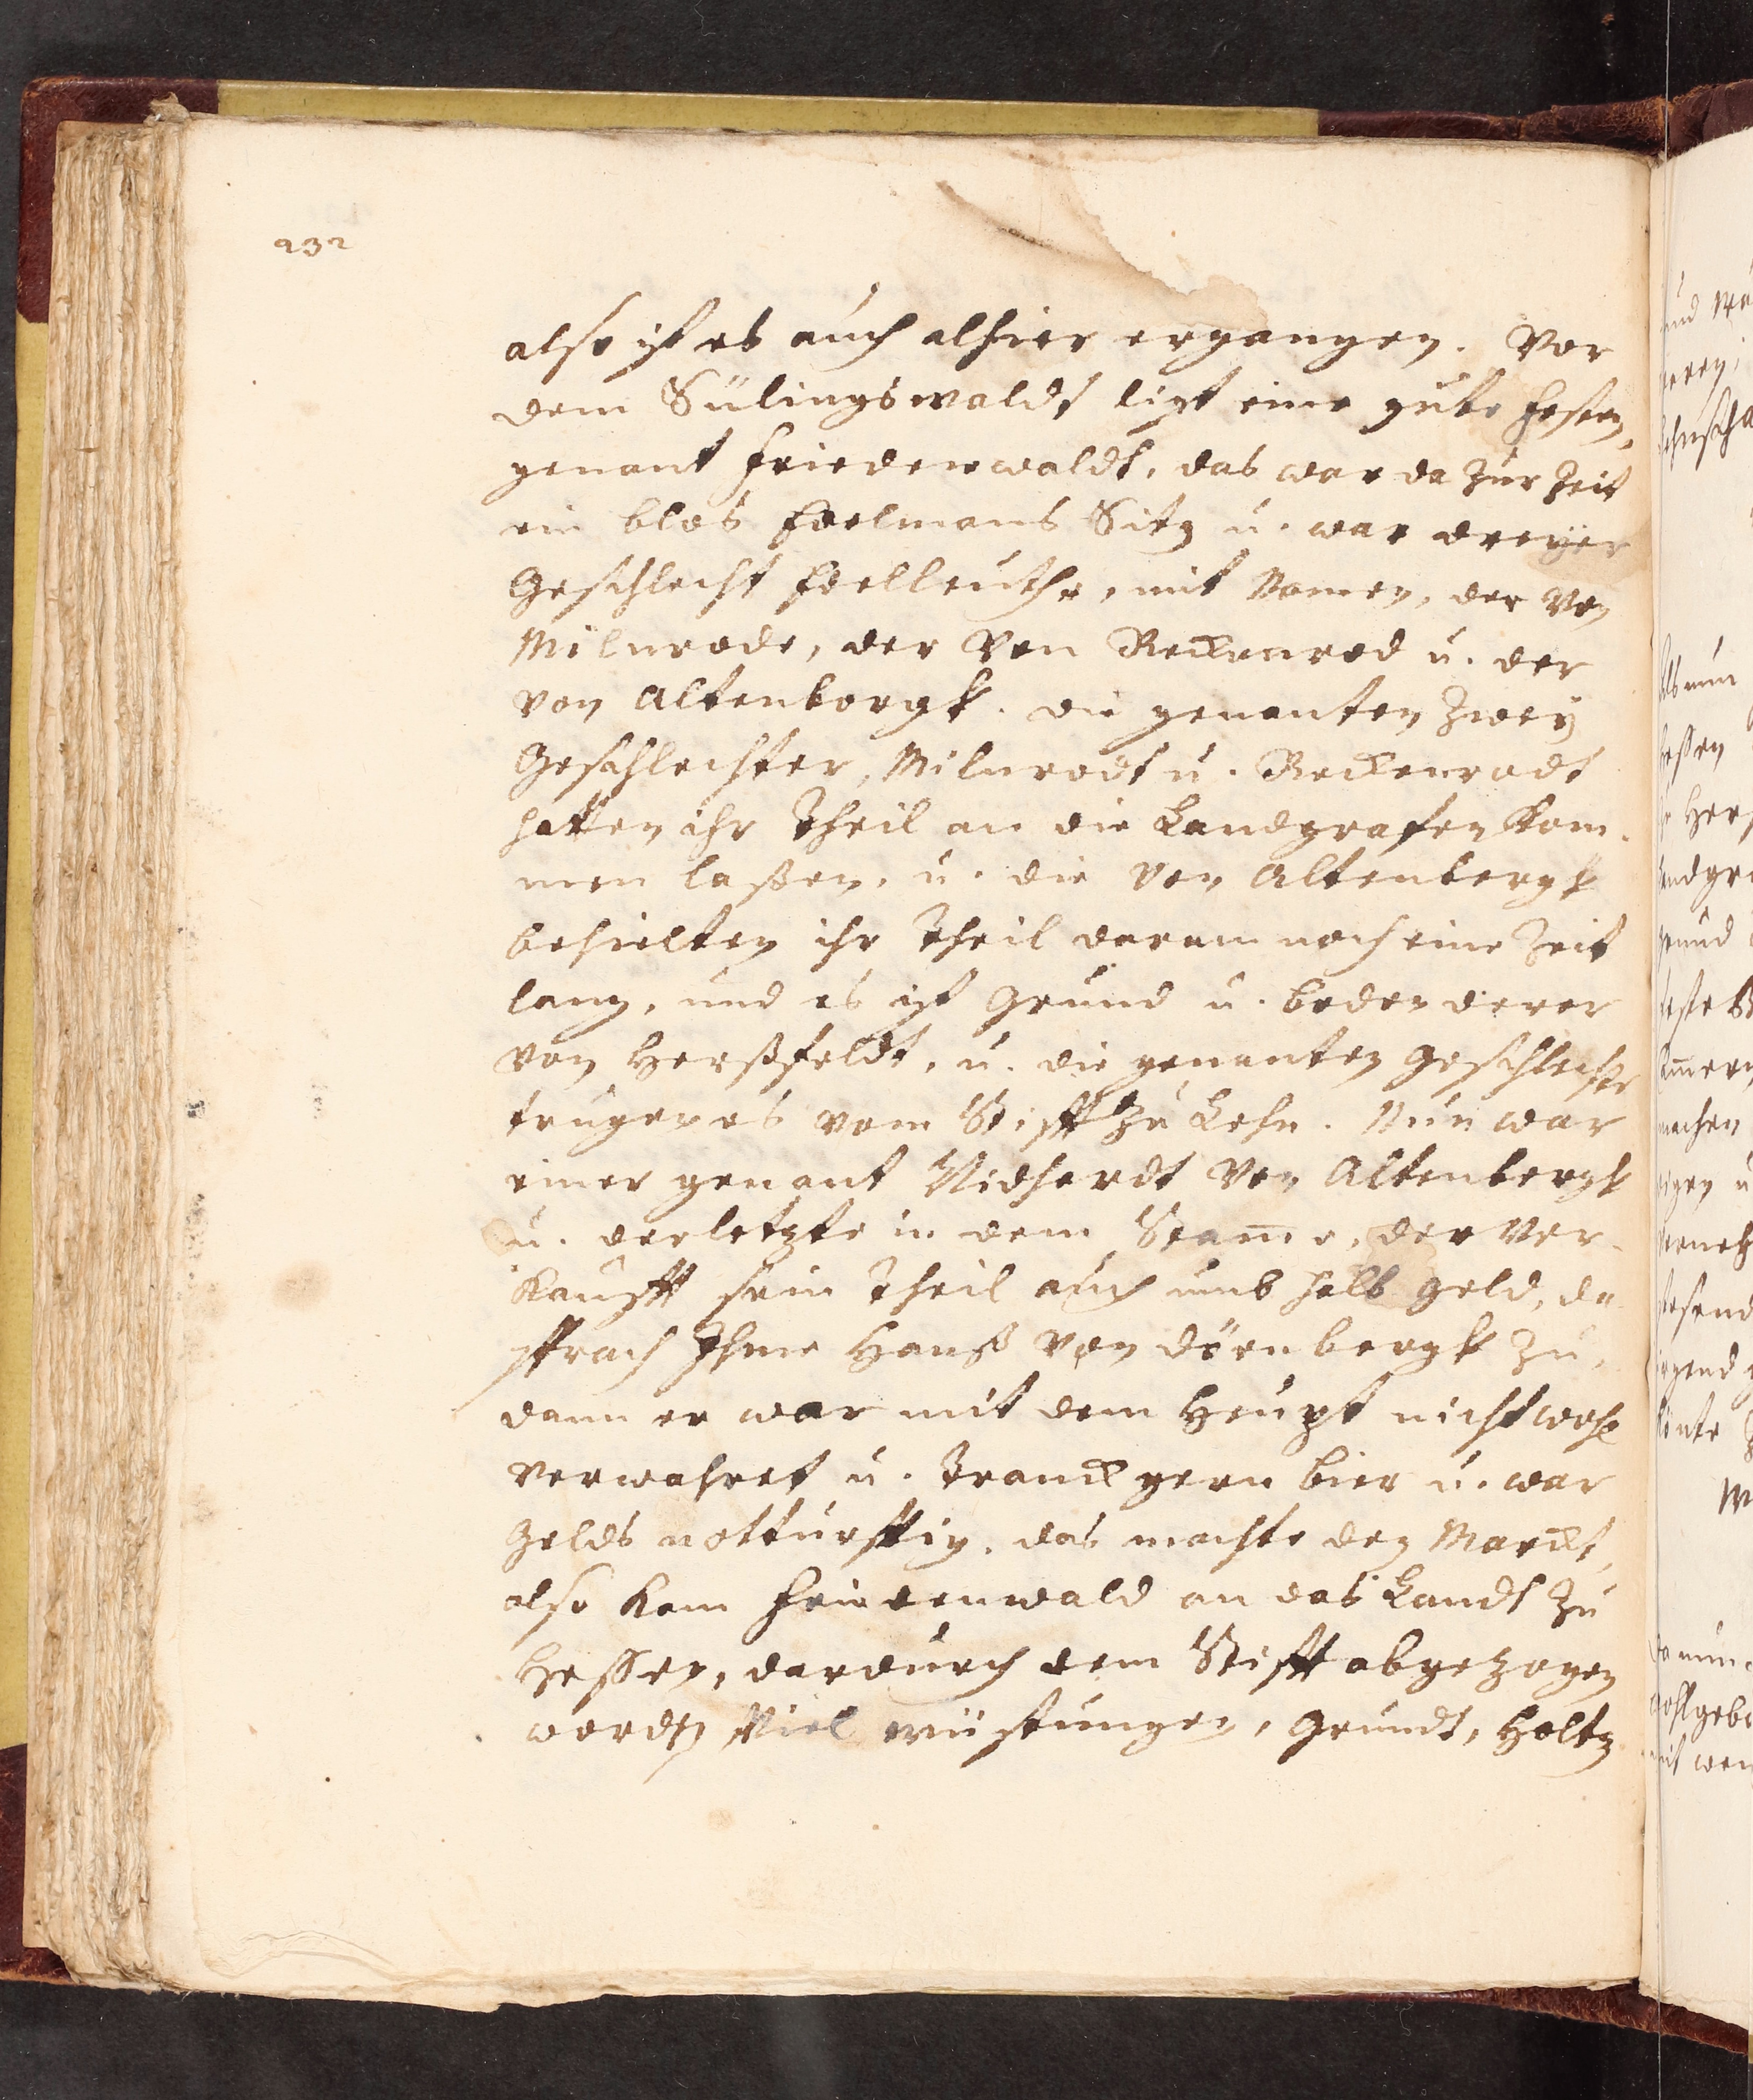 232
also ist es auch alhier ergangen. Vor
dem Sülingswaldt ligt eine gute festen,
genant Friedewaldt, das war da zur Zeit
ein blos Edelmans Sitz u. war dreÿer
Geschlecht Edelleuthe, mit Namen, der Von
Milnrode, der Von Reckenrod u. der
von Altenborgk. die genanten Zweÿ
Geschlechter, Milnrodt u. Reckenrodt
hatten ihr Theil an die Landgrafen kom-
men laßen, u. die von Altenbergk
behielten ihr Theil daran noch eine Zeit
lang, und es ist Grund u. boden derer
von Herßfeldt, u. die genanten Geschlecht
trugen es vom Stifft zu Lehn. Nun war
einer genant Nidherdt Von Altenbergk
u. der letzte in dem Stam̄e, der ver-
kaufft sein Theil auch umb halb geld, da
sprach Ihme Hanß von dörnbergk zu,
dann er war mit dem Heupt nicht wohl
verwahret u. tranck gern bier u. war
Gelds nottürfftig. das machte den Marckt,
also kam Friedenwald an das Landt zu
Hessen, dardurch dem Stifft abgezogen
worden Viel wüstungen, Grundt, Holtz